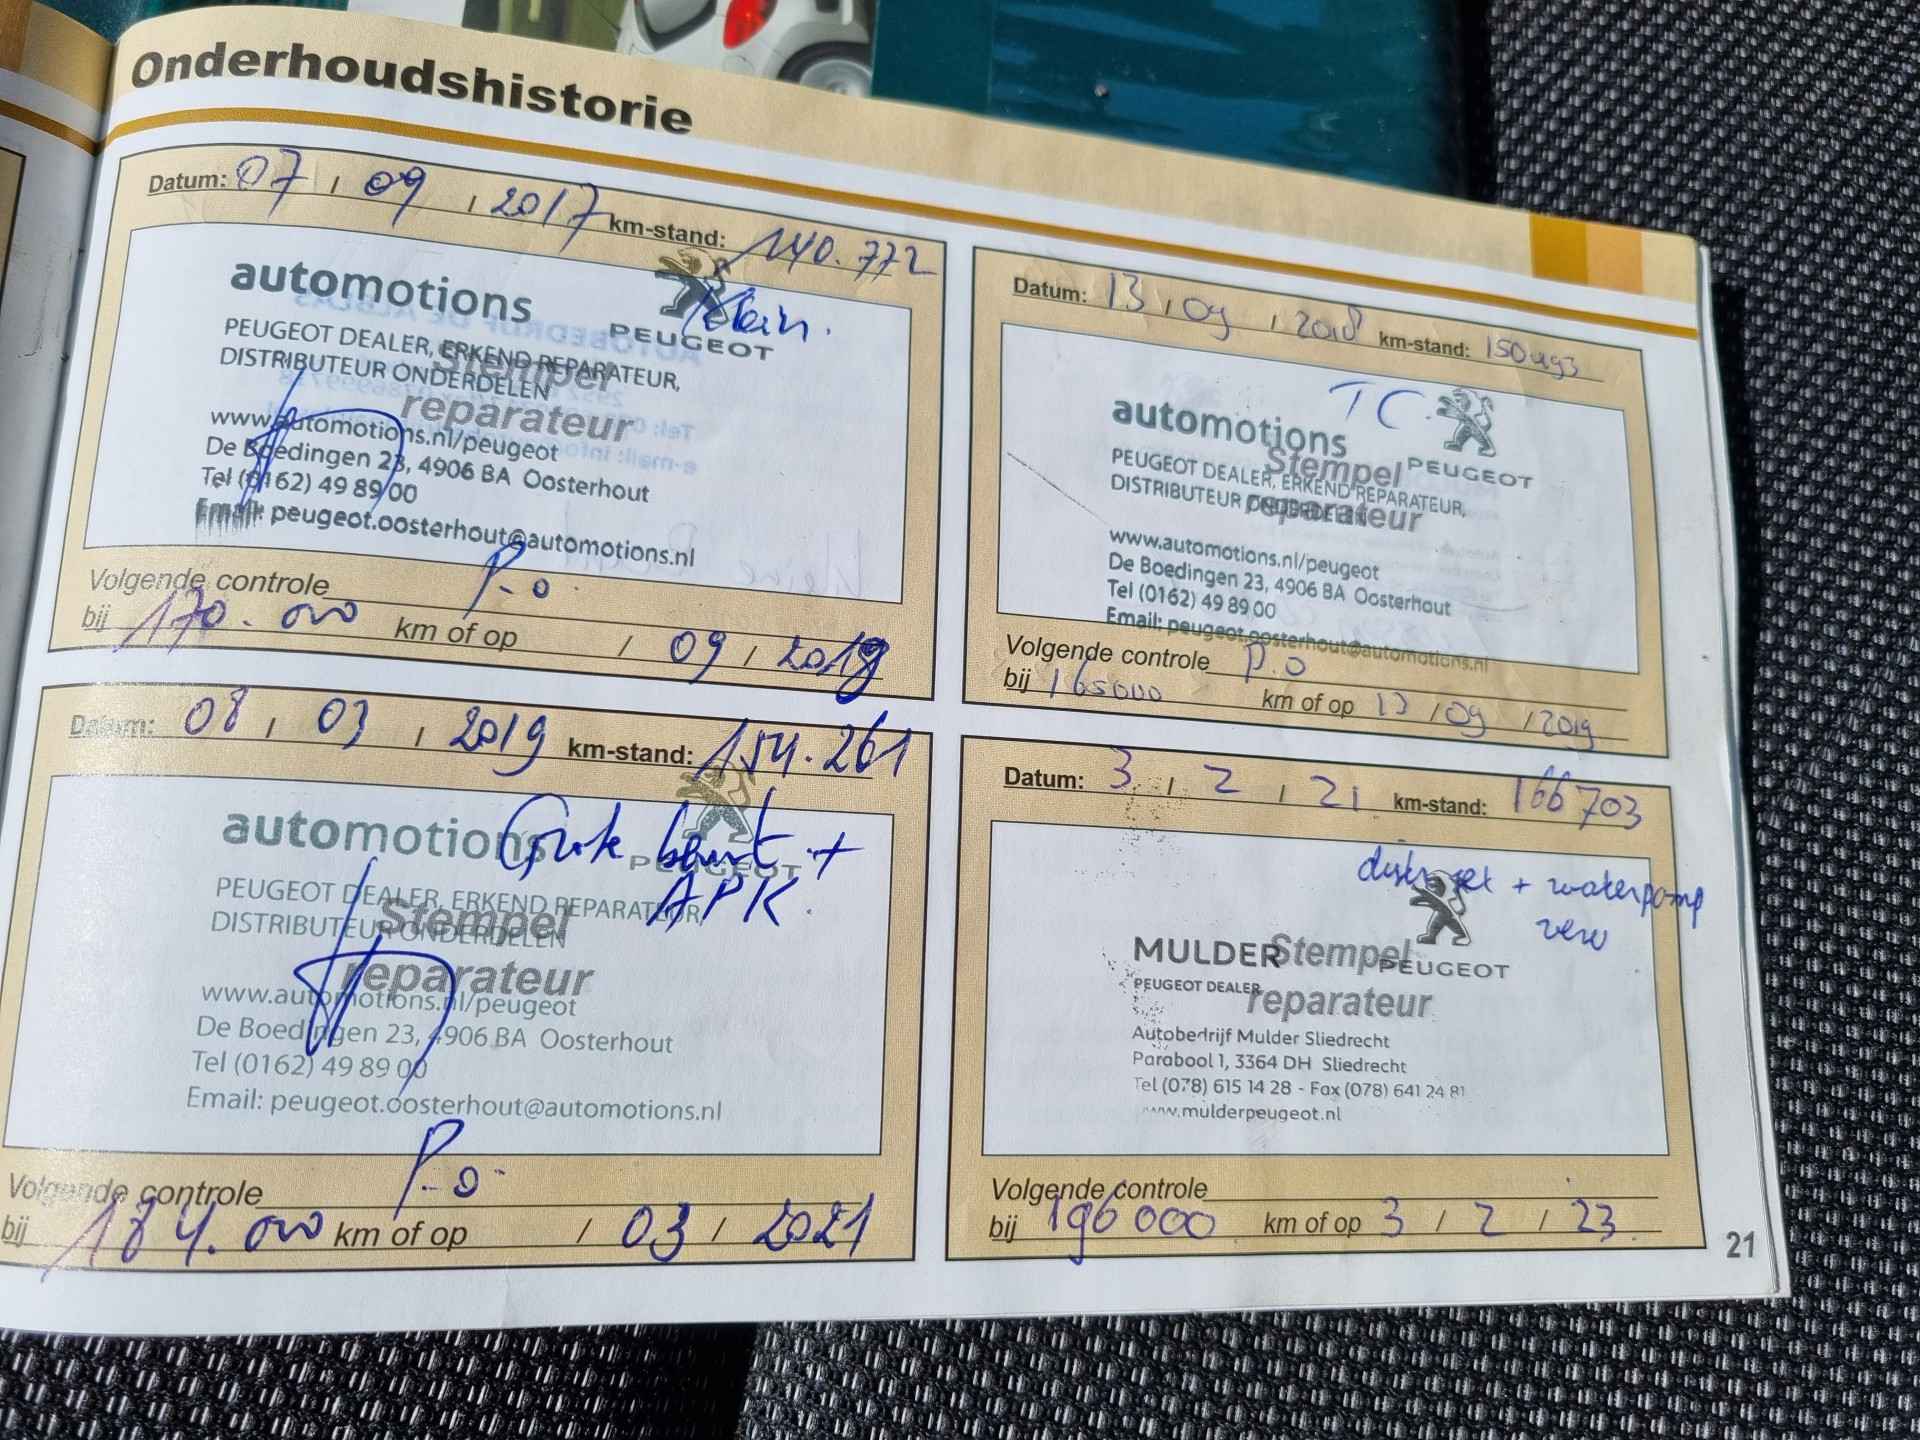 Onderhoudshistorie
Datum: 07 / 09 / 2017 km-stand: 140.772
automotions
Klein.
PEUGEOT
PEUGEOT DEALER, ERKEND REPARATEUR,
DISTRIBUTEUR ONDERDELEN
Stempel
reparateur
www.automotions.nl/peugeot
De Boedingen 23, 4906 BA Oosterhout
Tel (0162) 49 89 00
Email: peugeot.oosterhout@automotions.nl
Volgende controle P.O.
bij 170.000 km of op / 09 / 2019
Datum: 13 / 09 / 2018 km-stand: 150493
TC.
automotions
PEUGEOT
PEUGEOT DEALER, ERKEND REPARATEUR,
DISTRIBUTEUR ONDERDELEN
Stempel
reparateur
www.automotions.nl/peugeot
De Boedingen 23, 4906 BA Oosterhout
Tel (0162) 49 89 00
Email: peugeot.oosterhout@automotions.nl
Volgende controle P.O
bij 165000 km of op 13 / 09 / 2019
Datum: 08 / 03 / 2019 km-stand: 154.261
automotions
Grote beurt +
APK.
PEUGEOT
PEUGEOT DEALER, ERKEND REPARATEUR,
DISTRIBUTEUR ONDERDELEN
Stempel
reparateur
www.automotions.nl/peugeot
De Boedingen 23, 4906 BA Oosterhout
Tel (0162) 49 89 00
Email: peugeot.oosterhout@automotions.nl
Volgende controle P.O.
bij 184.000 km of op / 03 / 2021
Datum: 3 / 2 / 21 km-stand: 166703
+ waterpomp
verv
MULDER
PEUGEOT
PEUGEOT DEALER
Stempel
reparateur
Autobedrijf Mulder Sliedrecht
Parabool 1, 3364 DH Sliedrecht
Tel (078) 615 14 28 - Fax (078) 641 24 81
www.mulderpeugeot.nl
Volgende controle
bij 196000 km of op 3 / 2 / 23
21